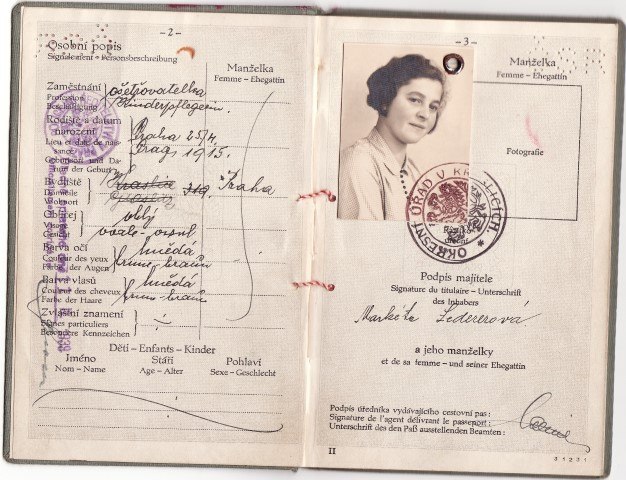 - 2 -
Osobní popis
Signalement - Personsbeschreibung
Manželka
Femme - Ehegattin
Zaměstnání
Profession
Beschäftigung
ošetřovatelka
Kinderpflegerin
Rodiště a datum
narození
Lieu et date de nais-
sance
Geburtsort und Da-
tum der Geburt
Praha 25/4.
Prag 1915.
Bydliště
Domicile
Wohnort
Kraslice
Graslitz
Praha
Obličej
Visage
Gesicht
oblý
ovale - oval
Barva očí
Couleur des yeux
Farbe der Augen
hnědá
brune - braun
Barva vlasů
Couleur des cheveux
Farbe der Haare
hnědá
brune - braun
Zvláštní znamení
Signes particuliers
Besondere Kennzeichen
Děti - Enfants - Kinder
Jméno
Nom - Name
Stáří
Age - Alter
Pohlaví
Sexe - Geschlecht
- 3 -
Manželka
Femme - Ehegattin
Fotografie
OKRESNÍ ÚŘAD V KRASLICÍCH
Podpis majitele
Signature du titulaire - Unterschrift
des Inhabers
Markéta Ledererová
a jeho manželky
et de sa femme - und seiner Ehegattin
Podpis úředníka vydávajícího cestovní pas:
Signature de l'agent délivrant le passeport:
Unterschrift des den Paß ausstellenden Beamten:
II
31231